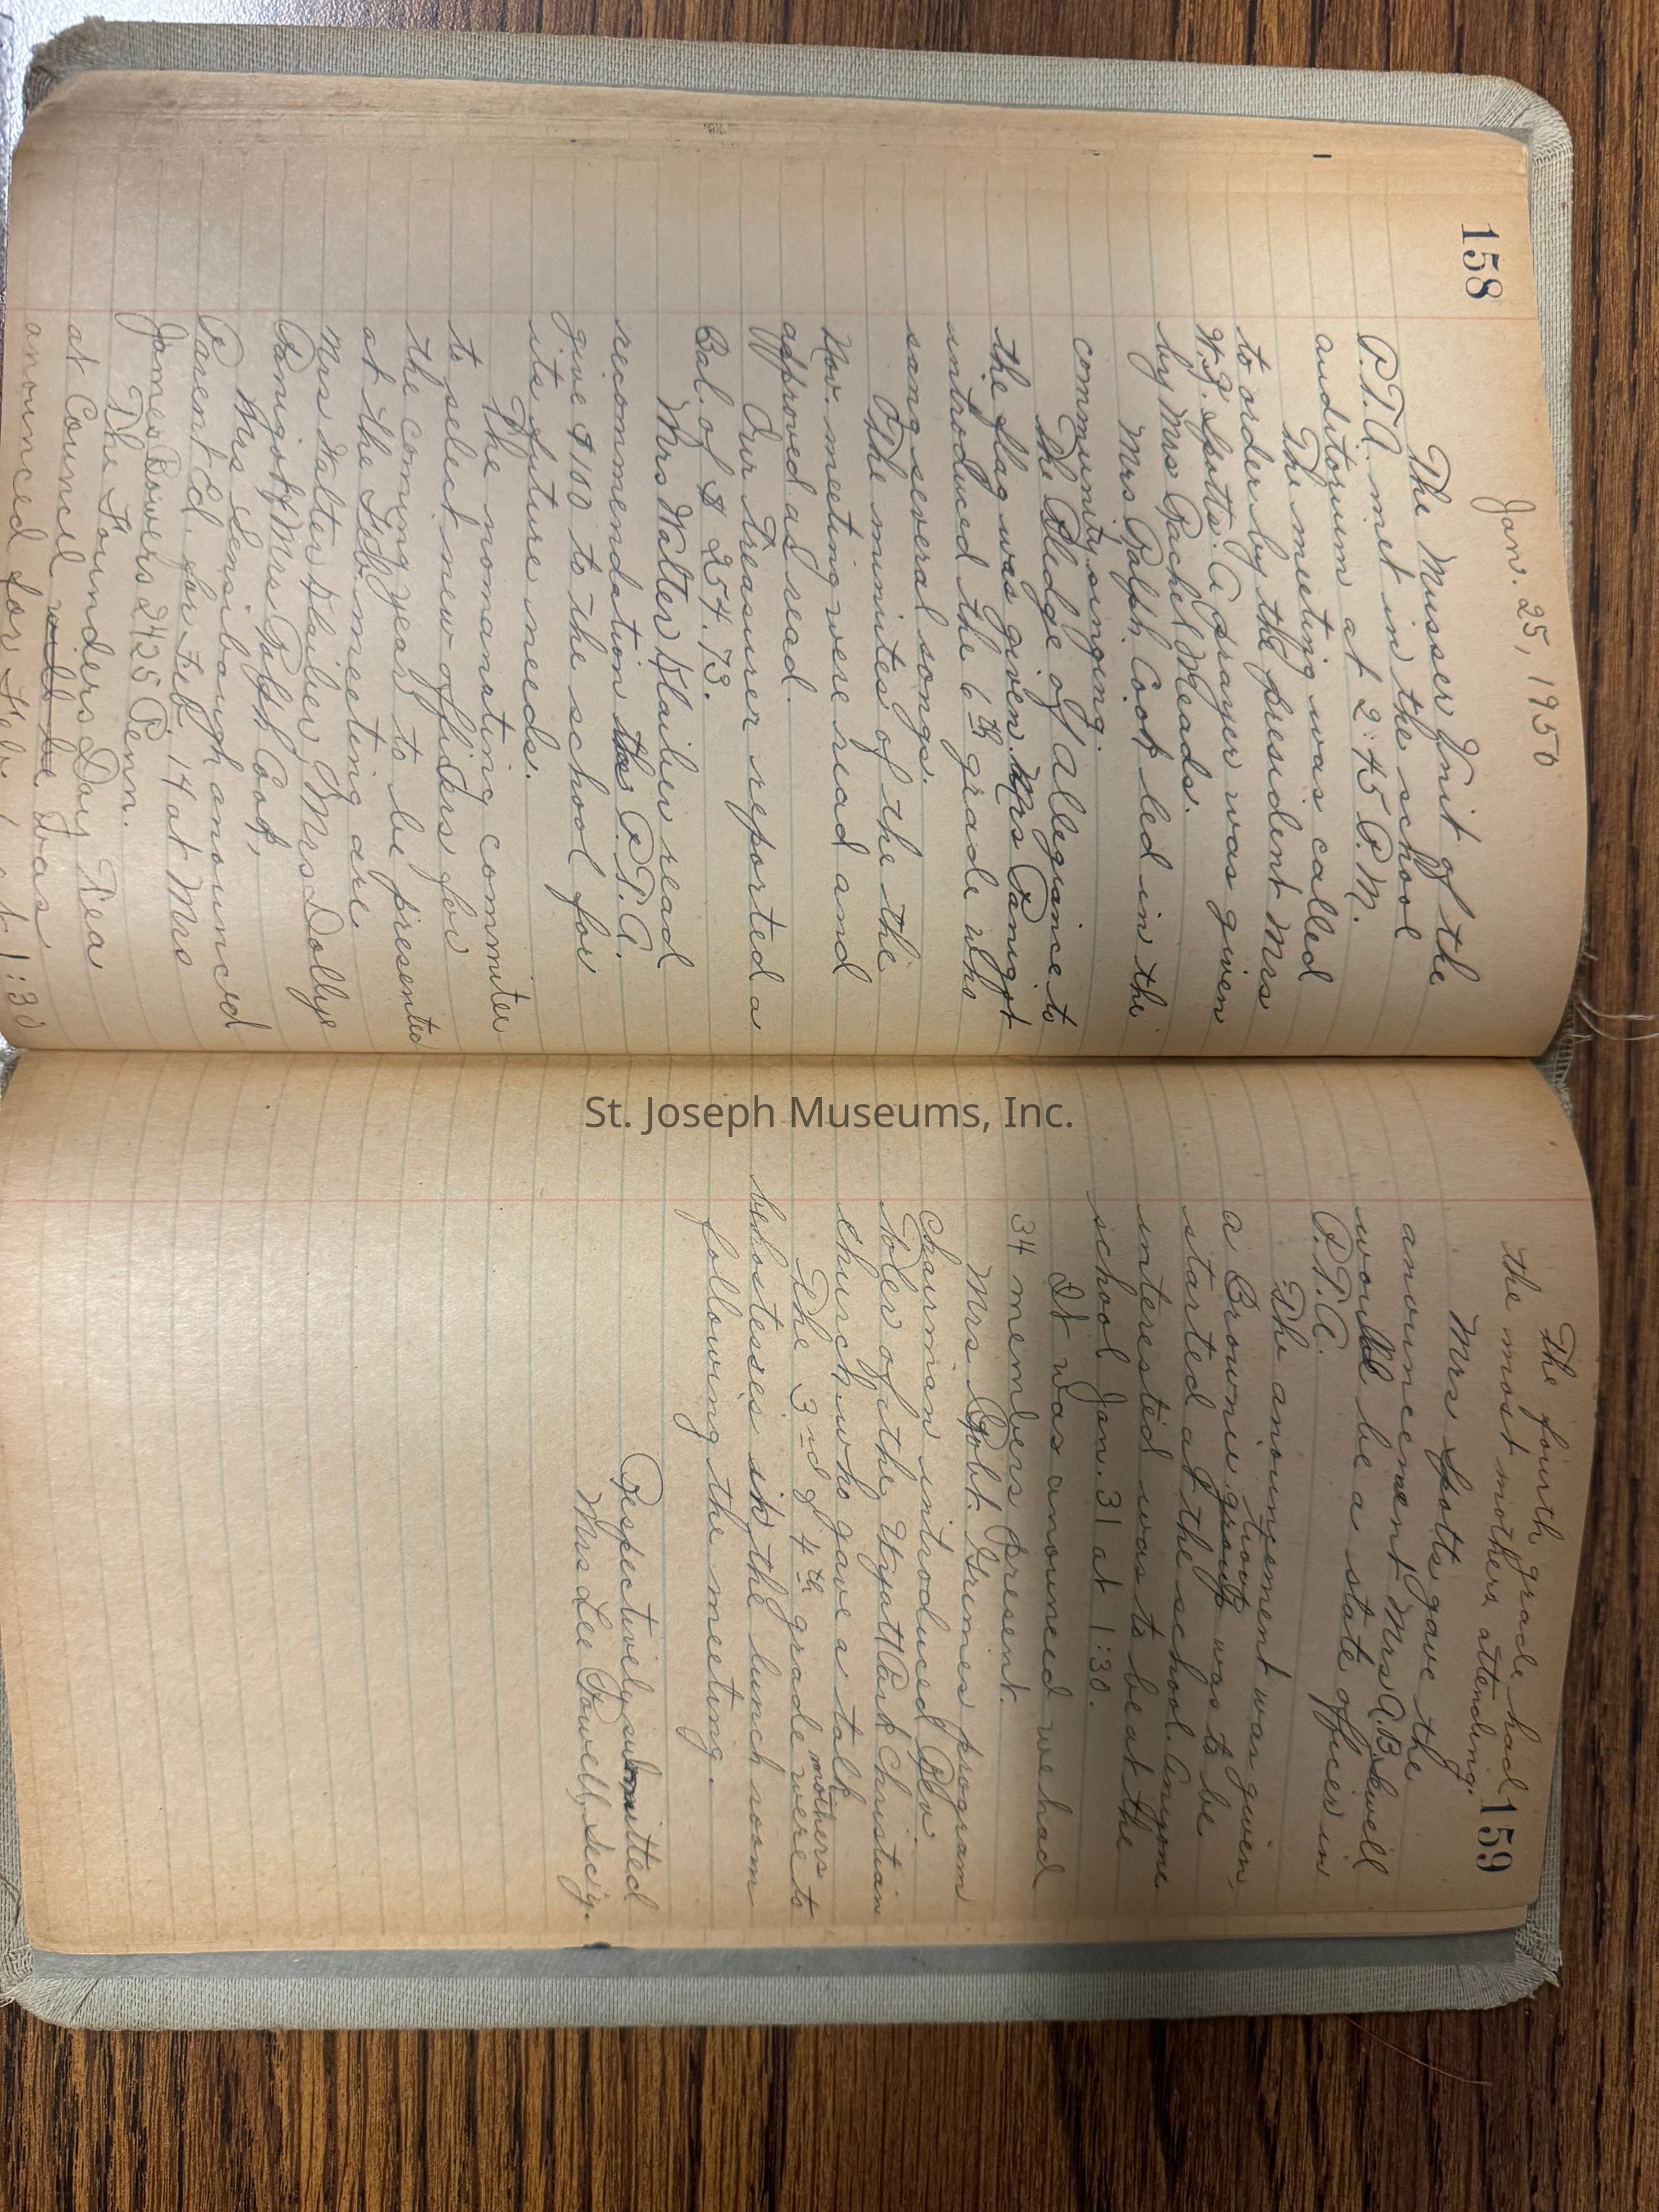 158
Jan. 25, 1950
The Musser Unit of the
P.T.A. met in the school
auditorium at 2:45 P.M.
The meeting was called
to order by the president Mrs
W.F. Spotts. A prayer was given
by Mrs Rachel Meads.
Mrs Ralph Cook led in the
community singing.
The Pledge of Allegiance to
the flag was given. Mrs
introduced the 6th grade who
sang several songs.
The minutes of the the
Nov. meeting were read and
approved as read.
Our treasurer reported a
Bal. of $254.73.
Mrs Walter read
recommendation the P.T.A.
give $100 to the school for
its future needs.
The nomanating commitee
to select new officers for
the coming year to be presented
at the Feb. meeting are
Mrs Walter Mrs Dollye
Mrs Ralph Cook,
Mrs Sensibaugh anounced
Parent Ed. for Feb. 14 at Mrs
James Bowers 2425 Penn.
The Founders Day Tea
at Council will be was
anounced for Feb. at 1:30
St. Joseph Museums, Inc.
159
The fourth grade had
the most mothers attending.
Mrs Spotts gave the
anouncement Mrs A.B. Sewell
would be a state officer in
P.T.A.
The anouncement was given,
troop
a Brownie group was to be
started at the school. Anyone
interested was to be at the
school Jan. 31 at 1:30.
It was anounced we had
34 members present.
Mrs. Robt. Grimes program
chairman introduced Rev.
Toler of the Wyatt Park Christian
church who gave a talk
mothers
The 3rd & 4th grade were to
behostesses in the lunch room
following the meeting.
Respectively submitted
Mrs Lee Powell, Sec'y.